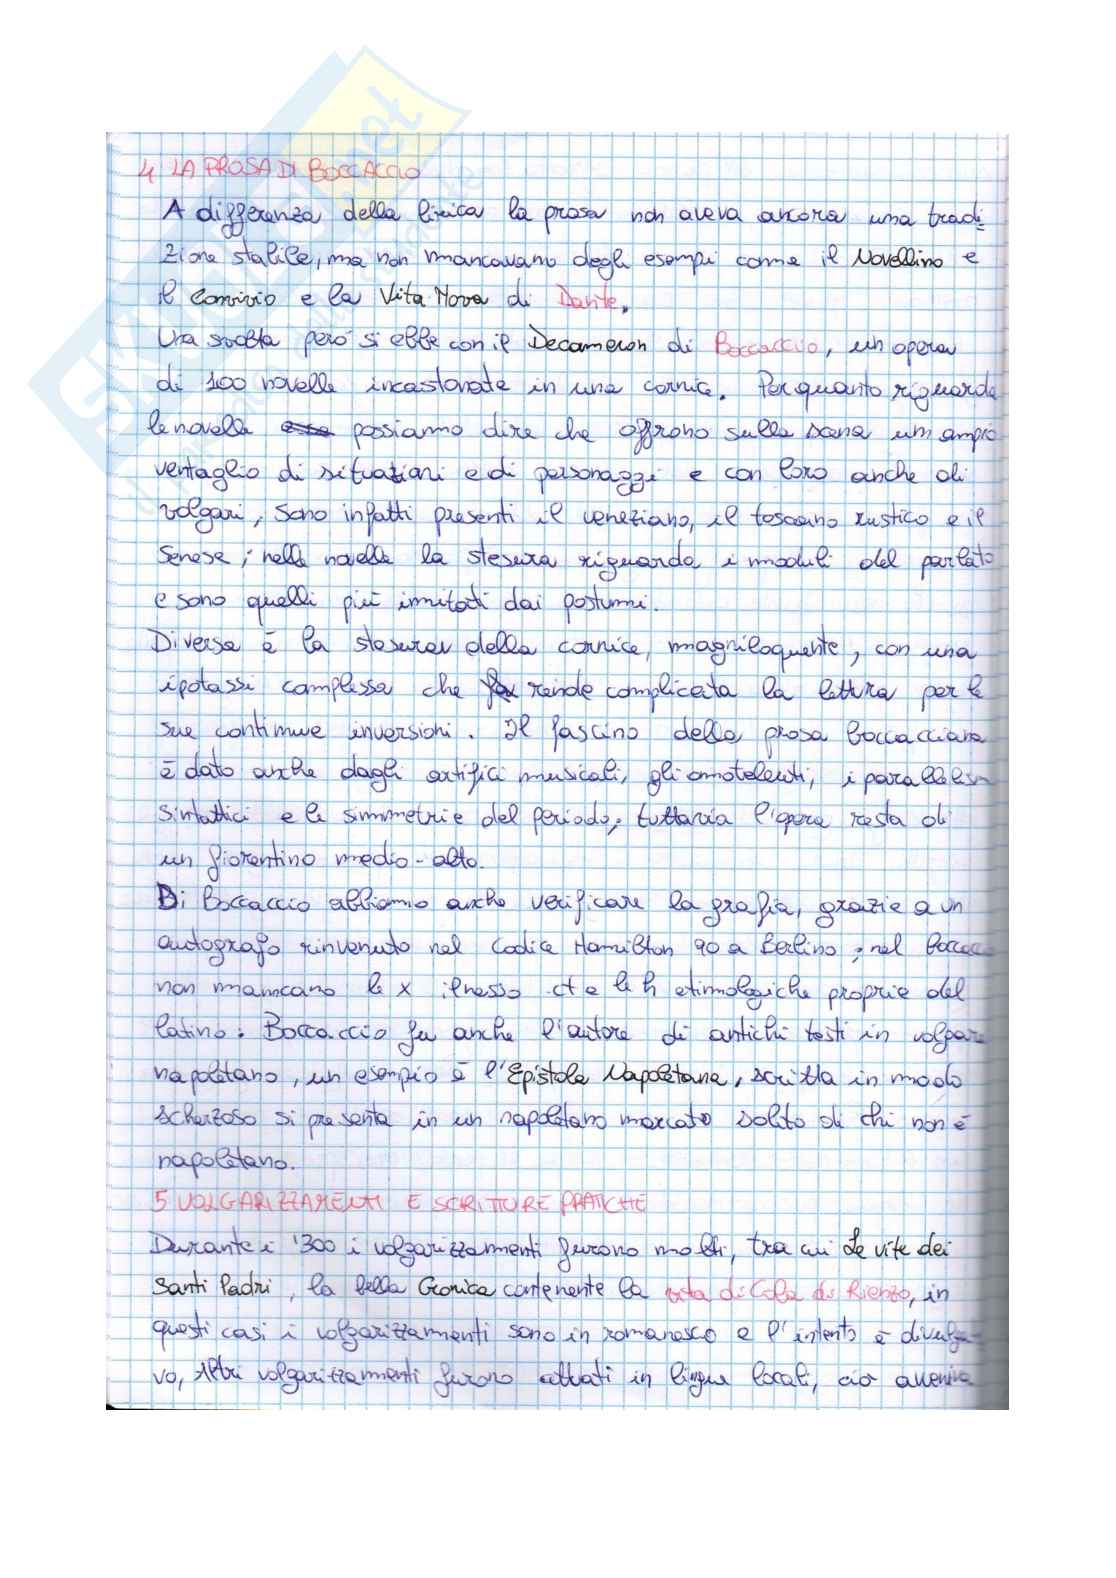 4 LA PROSA DI BOCCACCIO
A differenza della lirica la prosa non aveva ancora una tradi-
zione stabile, ma non mancavano degli esempi come il Novellino e
il Convivio e la Vita Nova di Dante.
Una svolta però si ebbe con il Decameron di Boccaccio, un'opera
di 100 novelle incastonate in una cornice. Per quanto riguarda
le novelle possiamo dire che offrono sulla scena un ampio
ventaglio di situazioni e di personaggi e con loro anche di
volgari, sono infatti presenti il veneziano, il toscano rustico e il
senese; nelle novelle la stesura riguarda i moduli del parlato
e sono quelli più imitati dai postumi.
Diversa è la stesura della cornice, magniloquente, con una
ipotassi complessa che rende complicata la lettura per le
sue continue inversioni. Il fascino della prosa boccacciana
è dato anche dagli artifici musicali, gli omoteleuti, i parallelismi
sintattici e le simmetrie del periodo; tuttavia l'opera resta di
un fiorentino medio-alto.
Di Boccaccio abbiamo anche verificare la grafia, grazie a un
autografo rinvenuto nel Codice Hamilton 90 a Berlino; nel Boccaccio
non mancano le x il nesso ct e le h etimologiche proprie del
latino. Boccaccio fu anche l'autore di antichi testi in volgare
napoletano, un esempio è l'Epistola Napoletana, scritta in modo
scherzoso si presenta in un napoletano marcato solito di chi non è
napoletano.
5 VOLGARIZZAMENTI E SCRITTURE PRATICHE
Durante i '300 i volgarizzamenti furono molti, tra cui Le vite dei
Santi Padri, la bella Cronica contenente la vita di Cola di Rienzo, in
questi casi i volgarizzamenti sono in romanesco e l'intento è divulgati-
vo, Altri volgarizzamenti furono attuati in lingue locali, ciò avveniva
SKuola.net